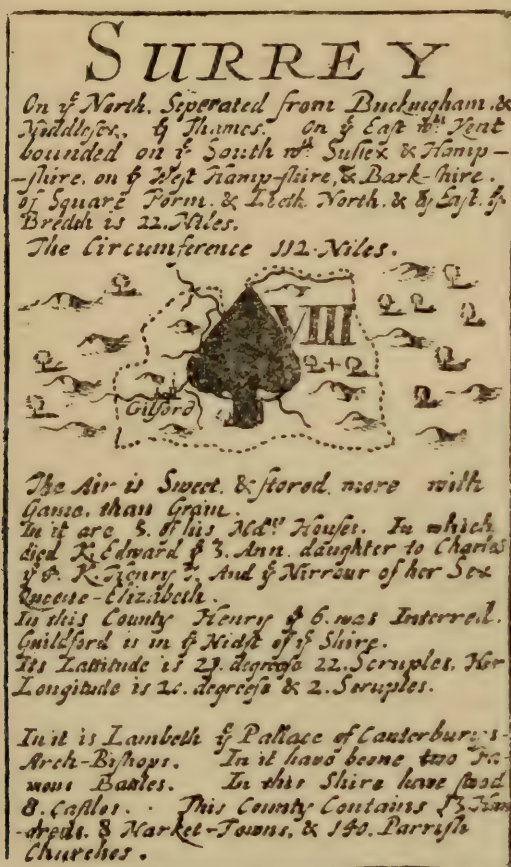 SURREY
On yᵉ North. Seperated from Buckingham. &
Middlesex, by Thames. On yᵉ East wᵗʰ Kent
bounded on yᵉ South wᵗʰ Suſſex & Hamp-
-ſhire. on yᵉ West Hamp-ſhire, & Bark-ſhire.
of Square Form. & Lieth North. & by Eaſt. yᵉ
Bredth is 22. Miles.
The Circumference 112. Miles.
VIII
Gilford
The Air is Sweet. & ſtored more with
Game, than Grain.
In it are 5. of his Houſes. In which
died K. Edward yᵉ 3. Ann. daughter to Charles
yᵉ K. Henry 7. And yᵉ Mirrour of her Sex
Queene-Elizabeth.
In this County Henry yᵉ 6. was Interred.
Guildford is in yᵉ Midſt of yᵉ Shire.
Its Lattitude is degreeſe 22. Scruples. Her
Longitude is degreeſe & 2. Scruples.
In it is Lambeth yᵉ Pallace of Canterburys-
Arch-Biſhops. In it have beene two Fa-
mous Batles. In this Shire have ſtood
8. Caſtles. This County Contains 13 Hun
-dreds, 8 Market-Towns, & 140. Parriſh
Churches.